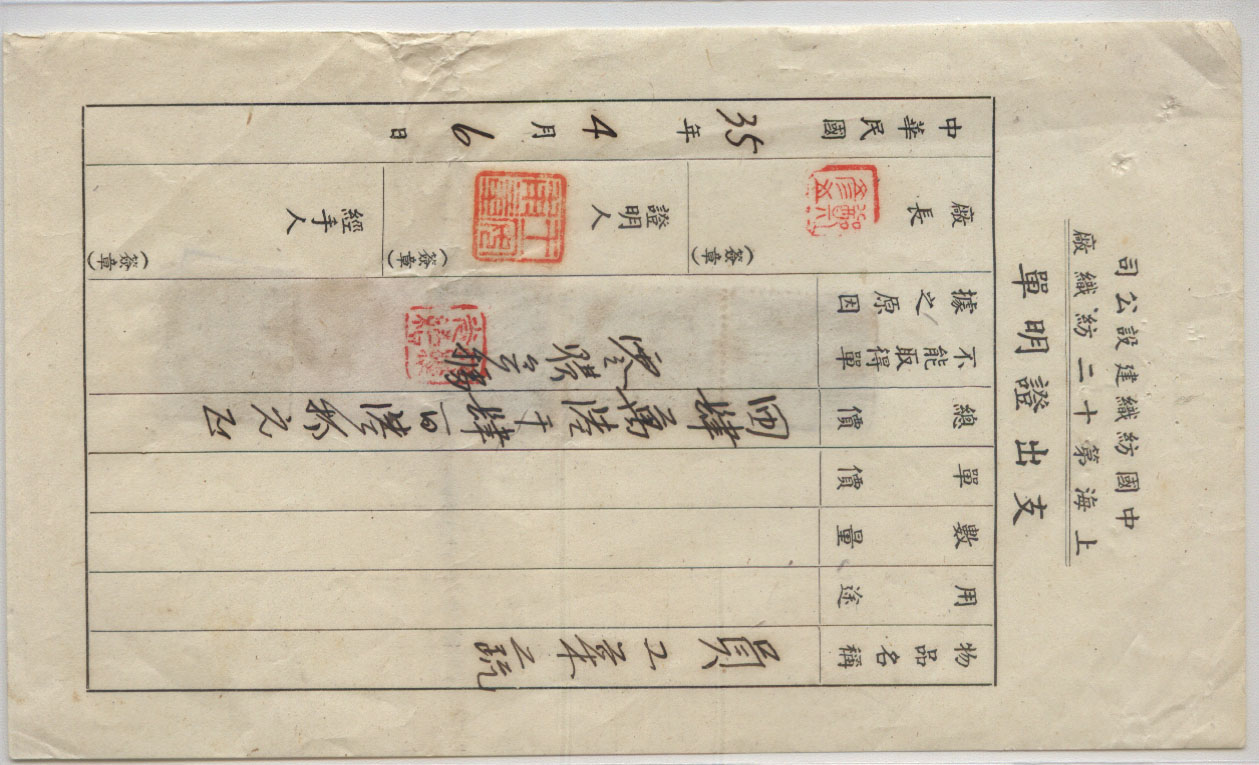 中國紡織建設公司
上海第十二紡織廠
支出證明單
物品名稱
員工
用途
數量
單價
總價
肆萬陸千肆百陸 元正
不能取得單據之原因
零
廠長
(簽章)
證明人
(簽章)
經手人
(簽章)
中華民國 35 年 4 月 6 日